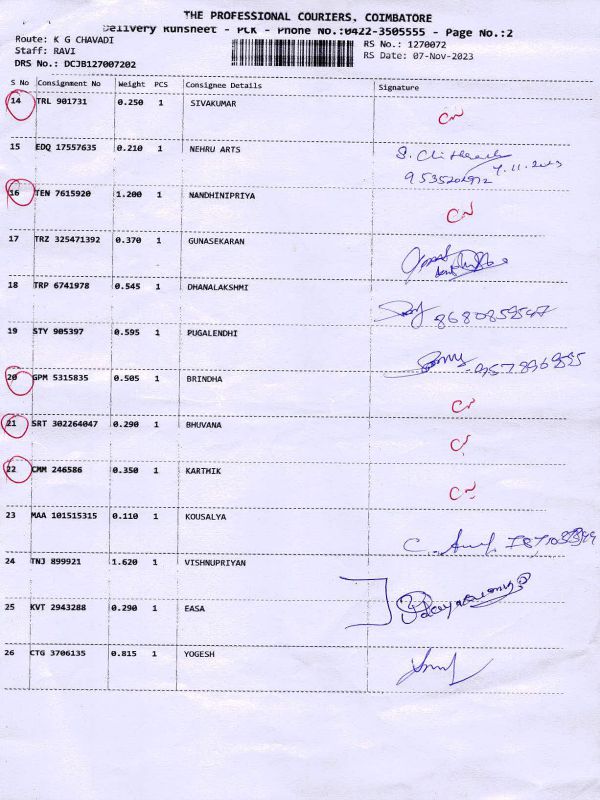 THE PROFESSIONAL COURIERS, COIMBATORE
Delivery Runsheet - PCK - Phone No.:0422-3505555 - Page No.:2
Route: K G CHAVADI
Staff: RAVI
DRS No.: DCJB127007202
RS No.: 1270072
RS Date: 07-Nov-2023
S No Consignment No Weight PCS Consignee Details Signature
14 TRL 901731 0.250 1 SIVAKUMAR
15 EDQ 17557635 0.210 1 NEHRU ARTS
7.11.2023
16 TEN 7615920 1.200 1 NANDHINIPRIYA
17 TRZ 325471392 0.370 1 GUNASEKARAN
18 TRP 6741978 0.545 1 DHANALAKSHMI
19 STY 905397 0.595 1 PUGALENDHI
20 GPM 5315835 0.505 1 BRINDHA
21 SRT 302264047 0.290 1 BHUVANA
22 CMM 246586 0.350 1 KARTHIK
23 MAA 101515315 0.110 1 KOUSALYA
24 TNJ 899921 1.620 1 VISHNUPRIYAN
25 KVT 2943288 0.290 1 EASA
26 CTG 3706135 0.815 1 YOGESH